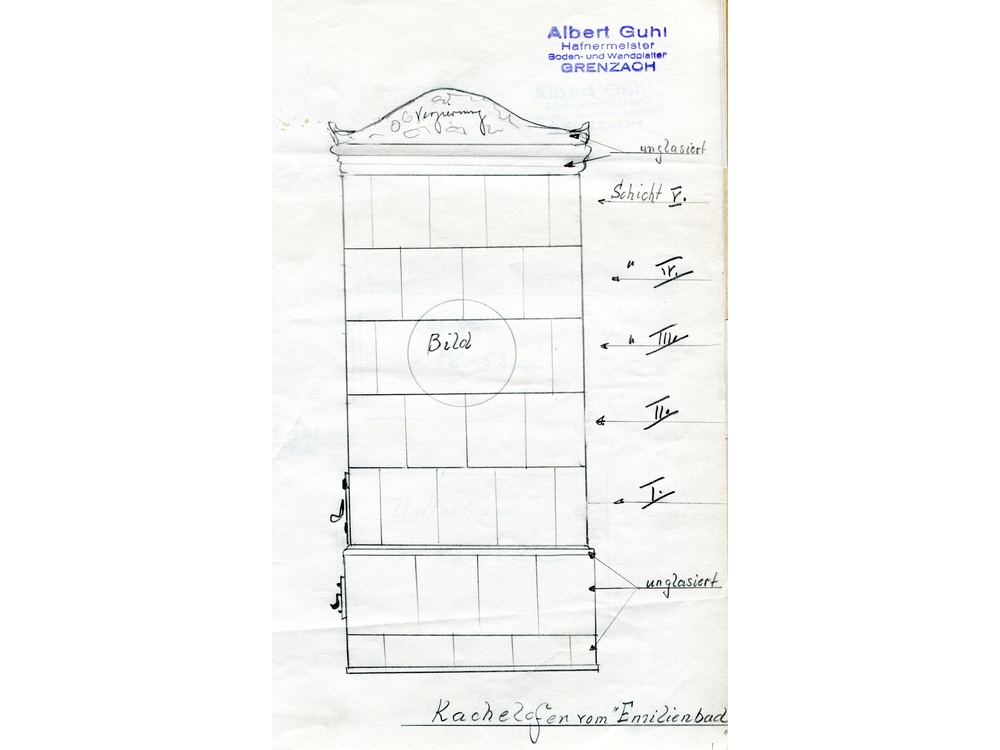 Albert Guhl
Hafnermeister
Boden- und Wandplatter
GRENZACH
Verzierung
unglasiert
Schicht V.
" IV.
Bild
" III.
II.
I.
unglasiert
Kachelofen vom "Emilienbad"